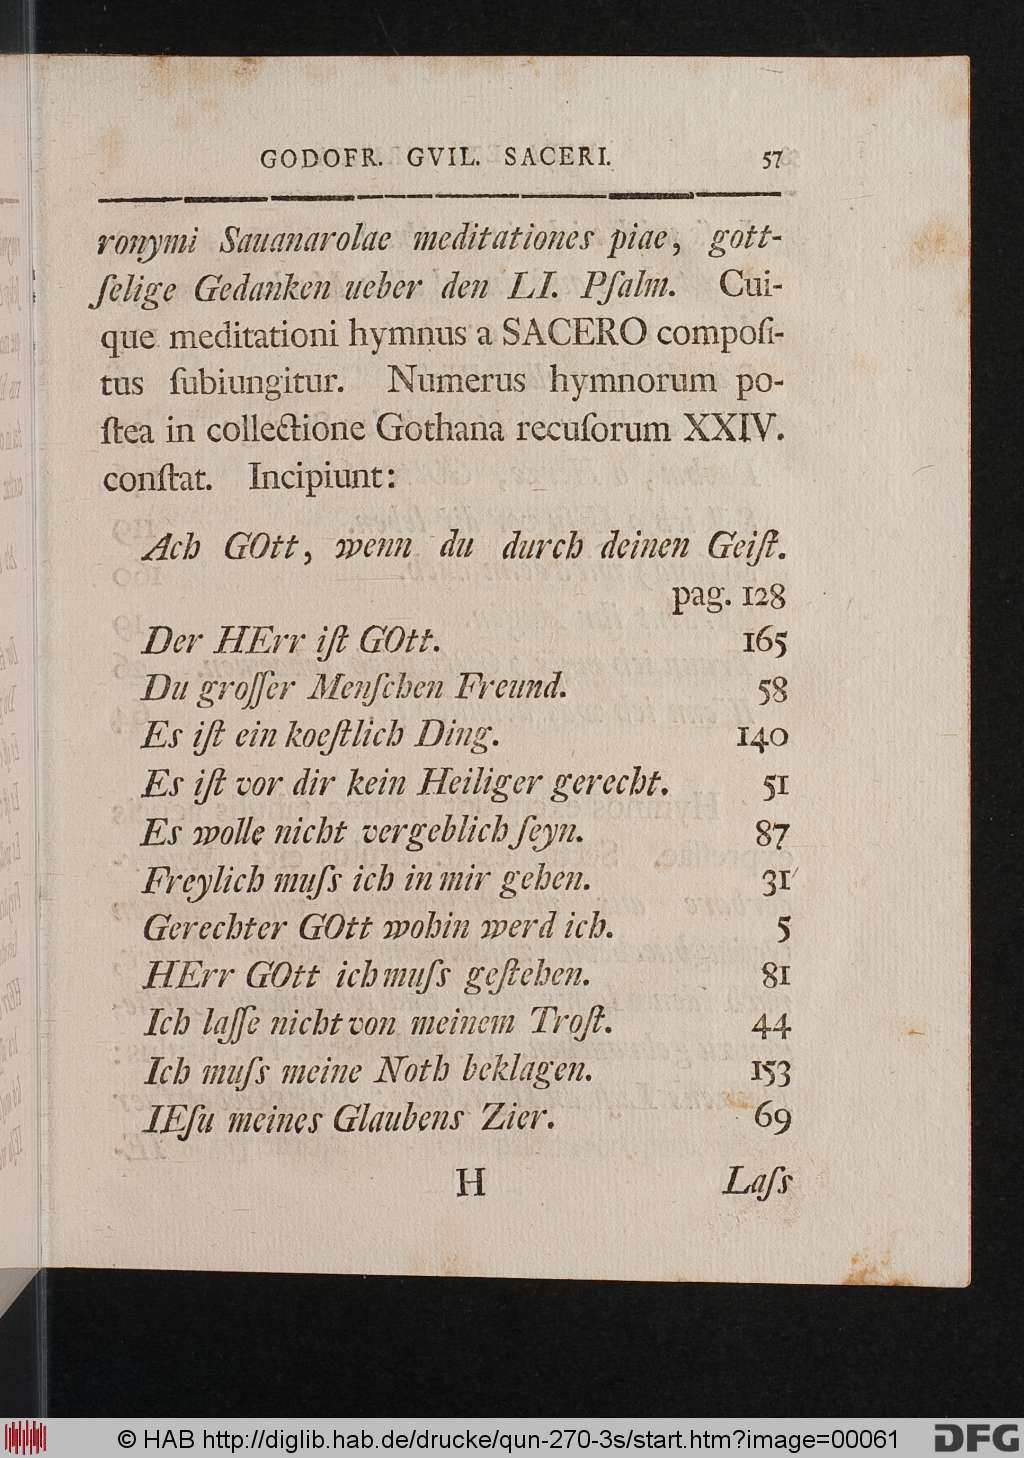 GODOFR. GVIL. SACERI. 57
ronymi Sauanarolae meditationes piae, gott-
ſelige Gedanken ueber den LI. Pſalm. Cui-
que meditationi hymnus a SACERO compoſi-
tus ſubiungitur. Numerus hymnorum po-
ſtea in collectione Gothana recuſorum XXIV.
conſtat. Incipiunt:
Ach GOtt, wenn du durch deinen Geiſt.
pag. 128
Der HErr iſt GOtt. 165
Du groſſer Menſchen Freund. 58
Es iſt ein koeſtlich Ding. 140
Es iſt vor dir kein Heiliger gerecht. 51
Es wolle nicht vergeblich ſeyn. 87
Freylich muſs ich in mir gehen. 31
Gerechter GOtt wohin werd ich. 5
HErr GOtt ich muſs geſtehen. 81
Ich laſſe nicht von meinem Troſt. 44
Ich muſs meine Noth beklagen. 153
IEſu meines Glaubens Zier. 69
H Laſs
© HAB http://diglib.hab.de/drucke/qun-270-3s/start.htm?image=00061 DFG